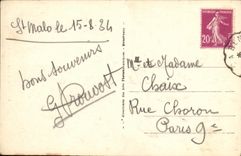 St Malo le 15-8-34
bons souvenirs
G Proucost
Mr et Madame
Chaix
Rue Choron
Paris 9e
20c